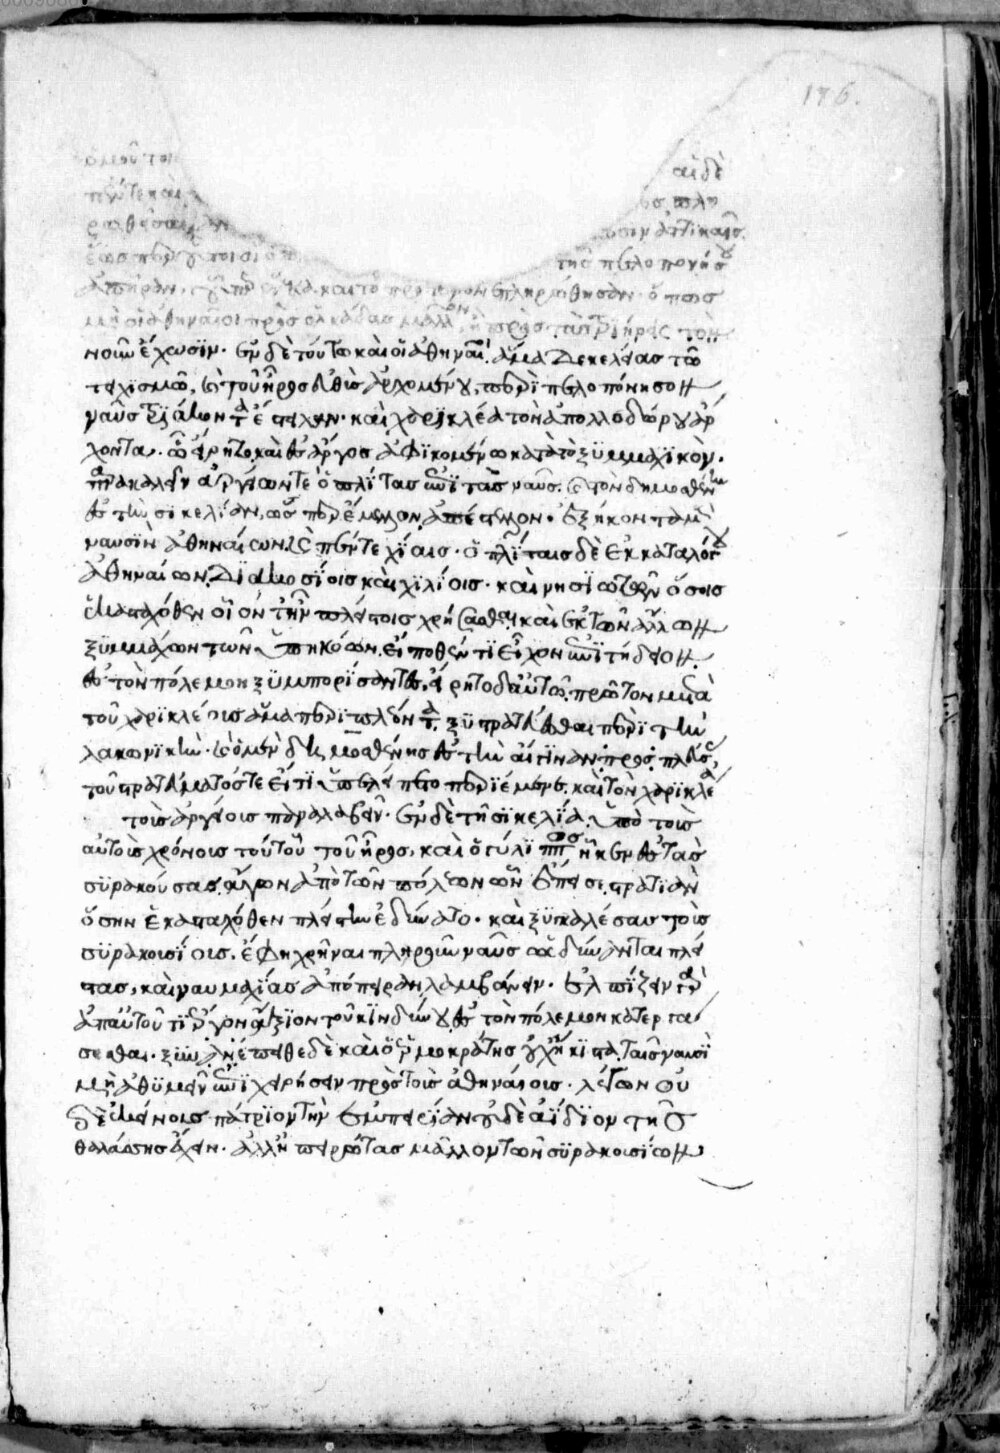 176.
αἱ δὲ
πέντε καὶ
ἕως περ αὐτοῖς οἱ
τῆς πελοποννήσου
ἀπῆραν. οὗπερ ἕνεκα καὶ τὸ πρότερον ἐπληρώθησαν. ὅπως
μὴ οἱ ἀθηναῖοι πρὸς ὁλκάδας μᾶλλον, ἢ πρὸς τὰς τριήρεις τὸν
νοῦν ἔχωσιν. ἐν δὲ τούτω καὶ οἱ ἀθηναῖοι ἅμα δεκελείας τῶ
τειχισμῶ, καὶ τοῦ ἦρος εὐθὺς ἀρχομένου, περὶ πελοπόννησον
ναῦς τριάκοντα ἔστειλαν. καὶ χαρικλέα τὸν ἀπολλοδώρου ἄρ
χοντα. ὧ εἴρητο καὶ ἐς ἄργος ἀφικομένω κατὰ τὸ ξυμμαχικὸν.
παρακαλεῖν ἀργείων τε ὁπλίτας ἐπὶ τὰς ναῦς. καὶ τὸν δημοσθένην
ἐς τὴν σικελίαν, ὥσπερ ἔμελλον ἀπέστελλον. ἑξήκοντα μὲν
ναυσὶν ἀθηναίων καὶ πέντε χίαις. ὁπλίταις δὲ ἐκ καταλόγου
ἀθηναίων διακοσίοις καὶ χιλίοις. καὶ νησιωτῶν ὅσοις
ἑκασταχόθεν οἷόν τ' ἦν πλείστοις χρήσασθαι καὶ ἐκ τῶν ἄλλων
ξυμμάχων τῶν ὑπηκόων. εἴ ποθέν τι εἶχον ἐπιτήδειον
ἐς τὸν πόλεμον ξυμπορίσαντες, εἴρητο δ' αὐτῶ. πρῶτον μετὰ
τοῦ χαρικλέοις ἅμα περιπλέοντα ξυστρατεύεσθαι περὶ τὴν
λακωνικήν. καὶ ὁ μὲν δημοσθένης ἐς τὴν αἴγιναν προσπλεύσας,
τοῦ στρατεύματός τε εἴ τι ὑπελέλειπτο περιέμενε. καὶ τὸν χαρικλέα
τοὺς ἀργείοις παραλαβεῖν. ἐν δὲ τῆ σικελία. ὑπὸ τοὺς
αὐτοὺς χρόνοις τούτου τοῦ ἦρος, καὶ ὁ γύλιππος ἧκεν ἐς τὰς
συρακούσας. ἄγων ἀπὸ τῶν πόλεων ὧν ἔπεισε. στρατιὰν
ὅσην ἑκασταχόθεν πλείστην ἐδύνατο. καὶ ξυγκαλέσας τοὺς
συρακοισίοις. ἔφη χρῆναι πληροῦν ναῦς ὡς δύνανται πλεί
στας, καὶ ναυμαχίας ἀπόπειραν λαμβάνειν. ἐλπίζειν γὰρ
ἀπ' αὐτοῦ τι ἔργον ἄξιον τοῦ κινδύνου ἐς τὸν πόλεμον κατεργά
σεσθαι. ξυνανέπειθε δὲ καὶ ὁ ἑρμοκράτης οὐχ ἥκιστα. ταῖς ναυσὶ
μὴ ἀθυμεῖν ἐπιχειρήσειν πρὸς τοὺς ἀθηναίοις. λέγων οὐ
δὲ ἐκείνοις πάτριον τὴν ἐμπειρίαν οὐδὲ ἀΐδιον τῆς
θαλάσσης ἔχειν. ἀλλ' ἠπειρώτας μᾶλλον τῶν συρακοισίων